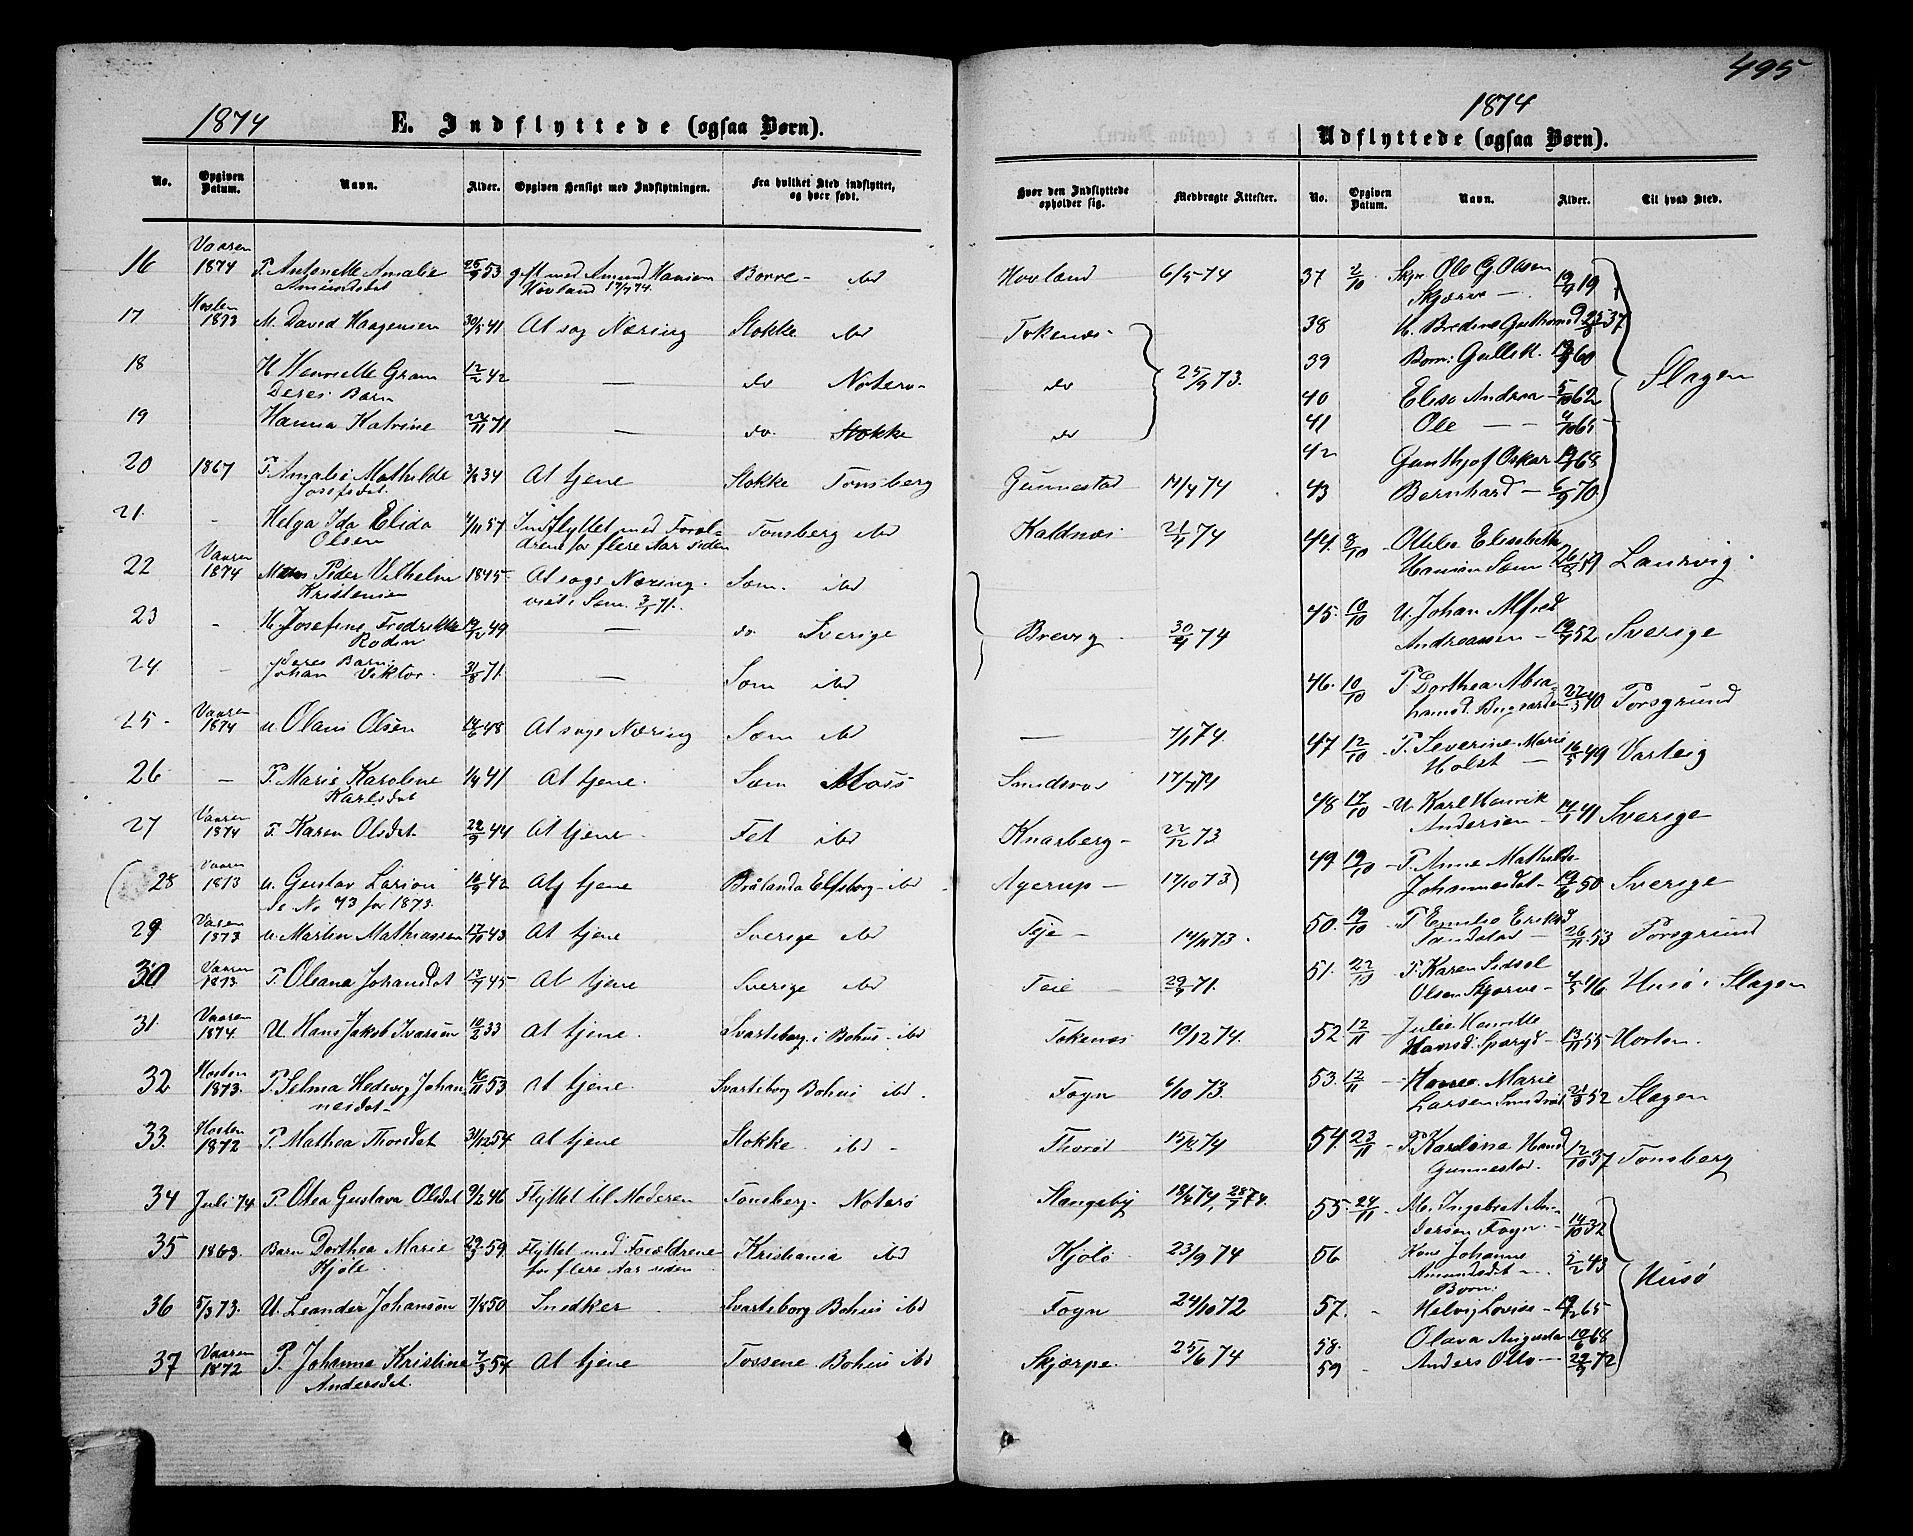 495
1874 E. Indflyttede (ogsaa Børn).
No. Opgiven Datum. Navn. Alder. Opgiven Hensigt med Indflytningen. Fra hvilket Sted indflyttet, og hvor født.
16 Vaaren 1874 P. Antonette Amalie Amundsdat 25/9 53 gift med Amund Hansen Hovland 17/7 74. Borre - ibd
17 Høsten 1873 M. David Haagensen 30/5 41 At søg Næring Stokke ibd
18 H Henriette Gram 12/2 42 — do Noterø
Deres Barn
19 Hanna Katrine 24/11 71 — do. Stokke
20 1867 P. Amalie Mathilde Josefsdat. 3/8 34 At tjene Stokke Tonsberg
21. - Helga Ida Elida Olsen 4/11 57 Indflyttet med Forældrene for flere Aar siden Tonsberg ibd
22 Vaaren 1874 Peder Vilhelm Kristensen 1845 At søge Næring. viet i Sem. 3/7 71. Sem. ibd
23 - H. Josefine Fredrikke Rodin 14/12 49 — do Sverige
24 - Deres Barn: Johan Viktor. 31/8 71. — Sem ibd
25 - Vaaren 1874 U. Olaus Olsen 14/6 48 At søge Næring Sem ibd
26 — P. Marie Karoline Karlsdat 1/4 41 At tjene. Sem Moss
27 Vaaren 1874 P. Karen Olsdat 22/9 44 At tjene. Fet ibd
(28 Vaaren 1873 U. Gustav Larson 16/9 42 At tjene Brålanda Elfsborg - ibd
se No 43 for 1873.
29 Vaaren 1873 U. Martin Mathiassen 17/10 43 At tjene Sverige ibd
30 Vaaren 1873. P. Oleana Johansdat 13/7 45 At tjene Sverige ibd
31. Vaaren 1874. U. Hans Jakob Ivarsen 10/2 33 At tjene. Svarteborg i Bohus - ibd
32 Høsten 1873. P. Selma Hedevig Johannesdat - 16/11 53 At tjene. Svarteborg Bohus ibd.
33. Høsten 1872 P. Mathea Thorsdat 31/12 54 At tjene Stokke ibd -
34 Juli 74 P. Otea Gustava Olsdat 9/2 46 Flyttet til Moderen Tonsberg. Noterø
35 1863 Barn Dorthea Marie Kjøle. 29/3 59. Flyttet med Forældrene for flere Aar siden Kristiania ibd
36 5/3 73. U. Leander Johansøn 7/8 50 Snedker Svarteborg Bohus ibd
37 Vaaren 1872 P. Johanna Kristine Andersdat. 7/3 54 At tjene Tossene Bohus ibd
1874
Udflyttede (ogsaa Børn).
Hvor den Indflyttede opholder sig. Medbragte Attester. No. Opgiven Datum. Navn. Alder. Til hvad Sted.
Hovland 6/5 74
Tokenæs
do 25/9 73.
do
Gunnestad 14/4 74
Kaldnæs 21/4 74
Brevig 30/4 74
— 7/1 74.
Smidsrød 17/4 74
Knarberg - 22/12 73
Agerup - 17/10 73)
Teje - 14/11 73.
Teie - 29/9 71.
Tokenæs 19/12 74.
Fogn 6/10 73.
Thorød 15/12 74
Stangeby 18/4 74, 28/7 74.
Kjølø 23/9 74
Fogn 24/10 72
Skjærpe. 25/6 74
37 2/10 Skpr. Ole G. Olsen Skjærve — 19/9 19
38 H. Bredine Guthormsd 23/8 37
39 Børn: Gullik. 19/9 60
40 Elise Andrea - 5/10 62 Slagen
41 Ole — - 4/10 65
42 Gunthjof Oskar 19/7 68
43 Bernhard — 6/9 70.
44. 8/10 - Otilie Elisabeth Hansen Sem. 26/8 19 Laurvig.
45. 10/10 U. Johan Alfred Andreassen - 19/9 52 Sverige
46. 10/10 P. Dorthea Abrahamsd. Bugaarden 27/3 40 Porsgrund
47 12/10 - P. Severine Marie Holst — 16/5 49 Varteig
48 17/10 - U. Karl Henrik Andersen - 14/1 41 Sverige
49 19/10 - P. Anne Mathilde Johannesdat - 19/6 50 Sverige
50. 19/10 P Emilie Eriksd - 26/11 53 Porsgrund
51. 22/10 P. Karen Sidsel Olsen Skjærve - 4/5 46 Husø i Slagen
52 12/11 - Julie Henriette Hansd. 13/11 55 - Horten.
53. 12/11 - Marie Larsen Smidsrød 21/8 52 Slagen
54. 23/11 - P. Karoline Hansd Gunnestad. 12/10 37 Tonsberg
55. 24/11 M. Ingebret Andersen Fogn. - 14/10 32
56 Kone Johanne Amundsdat - . 2/2 43 Husø
Børn.
57. - Helvig Lovise - 19/2 65
58. Olava Augusta 10/6 68
59 - Anders Otto — 29/9 72